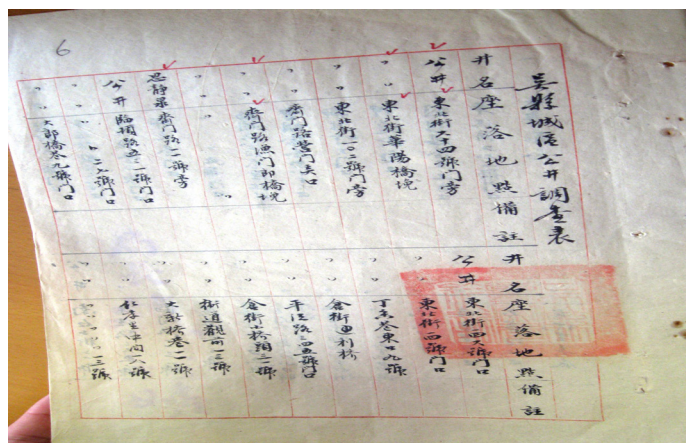 吳縣城區公井調查表
井名 座落地點 備註
公井 東北街六十四號門旁
〃 〃 東北街華陽橋堍
〃 〃 東北街一〇二號門旁
〃 〃 齊門路營門口
〃 〃 齊門路漁郎橋堍
〃 〃 〃
思靜泉 齊門路一一號旁
公井 臨頓路五二一號門口
〃 〃 〃 二二六號門口
〃 〃 大郎橋巷九號門口
井名 座落地點 備註
公井 東北街四六號門口
〃 〃 東北街四號門口
〃 〃 丁香巷東口九號
〃 〃 倉街 利橋
〃 〃 平江路三四五號門口
〃 〃 倉街小橋頭三一號
〃 〃 街道觀前一三號
〃 〃 大新橋巷二一號
〃 〃 中間六號
〃 〃 一三號
6